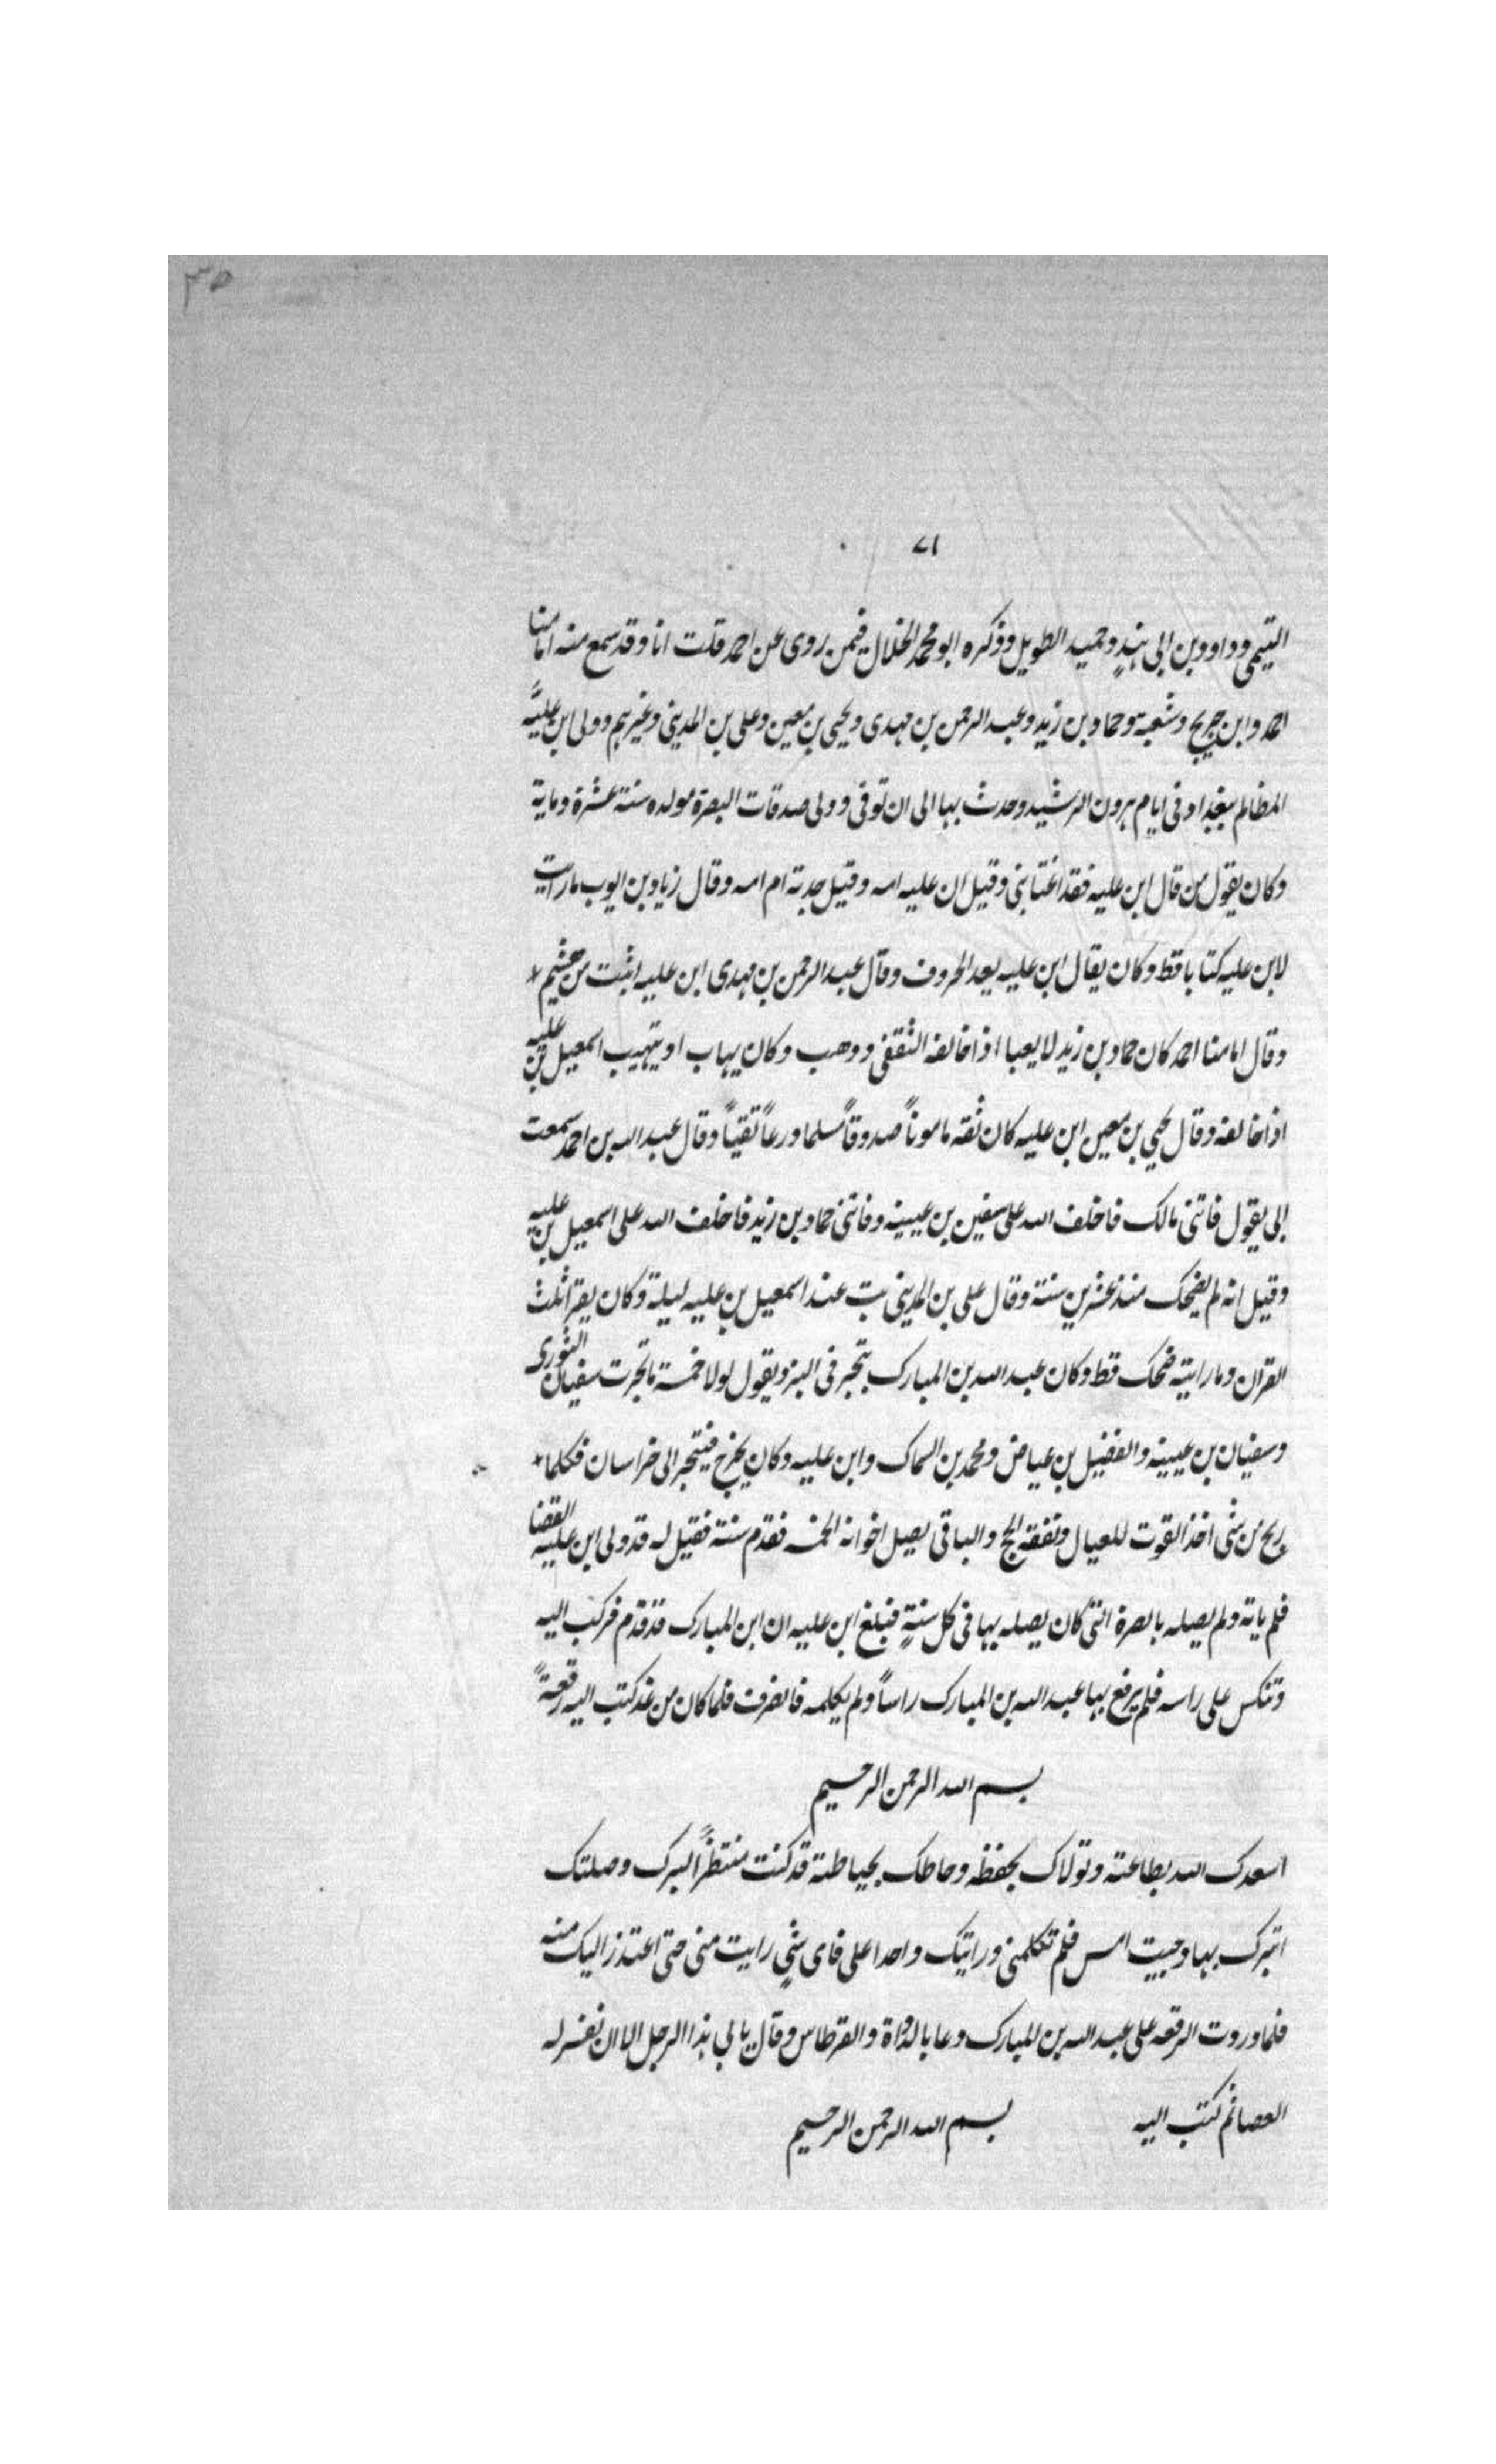 ٣٥
٧١
التيمى وداود بن ابى هند وحميد الطويل وذكره ابو محمد الخلال فيمن روى عن احمد قلت انا وقد سمع منه امامنا
احمد وابن جريج وشعبة وحماد بن زيد وعبد الرحمن بن مهدى ويحيى بن معين وعلى بن المدينى وغيرهم وولى ابن عليّه
المظالم ببغداد فى ايام هرون الرشيد وحدث بها الى ان توفى وولى صدقات البصرة مولده سنة عشرة وماية
وكان يقول من قال ابن عليه فقد اغتابنى وقيل ان عليه امه وقيل جدته ام امه وقال زياد بن ايوب مارايت
لابن عليه كتابا قط وكان يقال ابن عليه يعد الحروف وقال عبد الرحمن بن مهدى ابن عليه اثبت من هشيم *
وقال امامنا احمد كان حماد بن زيد لا يعبا اذا خالفه الثقفى ووهب وكان يهاب او يتهيب اسمعيل بن عليه
اذا خالفه وقال يحيى بن معين ابن عليه كان ثقه مامونًا صدوقًا مسلما ورعًا تقيًا وقال عبد الله بن احمد سمعت
ابى يقول فاتنى مالك فاخلف الله على سفين بن عيينه وفاتنى حماد بن زيد فاخلف الله على اسمعيل بن عليه
وقيل انه لم يضحك منذ عشرين سنة وقال على بن المدينى بت عند اسمعيل بن عليه ليلة وكان يقرا ثلث
القران ومارايته ضحك قط وكان عبد الله بن المبارك يتجر فى البز ويقول لولا خمسة ماتجرت سفيان الثورى
وسفيان بن عيينه والفضيل بن عياض ومحمد بن السماك وابن عليه وكان يخرج فيتجر الى خراسان فكلما *
ربح من شى اخذ القوت للعيال ونفقة الحج والباقى يصل اخوانه الخمسه فقدم سنة فقيل له قد ولى ابن عليه القضا
فلم ياته ولم يصله بالصرة التى كان يصله بها فى كل سنةٍ فبلغ ابن عليه ان ابن المبارك قد قدم فركب اليه
وتنكس على راسه فلم يرفع بها عبد الله بن المبارك راسًا ولم يكلمه فانصرف فلما كان من غد كتب اليه رقعةً
بسم الله الرحمن الرحيم
اسعدك الله بطاعته وتولاك بحفظه وحاطك بحياطته قد كنت منتظرًا لبرك وصلتك
اتبرك بها وجيت امس فلم تكلمنى ورايتك واحدا على فاى شىٍ رايت منى حتى اعتذر اليك منه
فلما وردت الرقعه على عبد الله بن المبارك دعا بالدواة والقرطاس وقال يابى هذا الرجل الا ان نقشر له
العصا ثم كتب اليه بسم الله الرحمن الرحيم